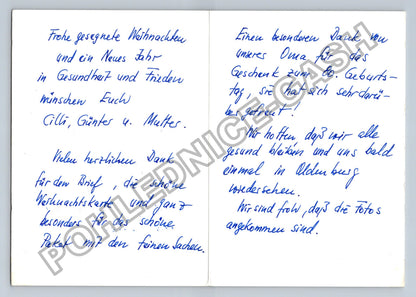 Frohe gesegnete Weihnachten
und ein Neues Jahr
in Gesundheit und Frieden
wünschen Euch
Cilli, Günter u. Mutter.
Vielen herzlichen Dank
für den Brief, die schöne
Weihnachtskarte und ganz
besonders für das schöne
Paket mit den feinen Sachen.
Einen besonderen Dank von
unserer Oma für das
Geschenk zum 80. Geburts-
tag, sie hat sich sehr darü-
ber gefreut.
Wir hoffen, daß wir alle
gesund bleiben und uns bald
einmal in Oldenburg
wiedersehen.
Wir sind froh, daß die Fotos
angekommen sind.
POHLEDNICE-CASH